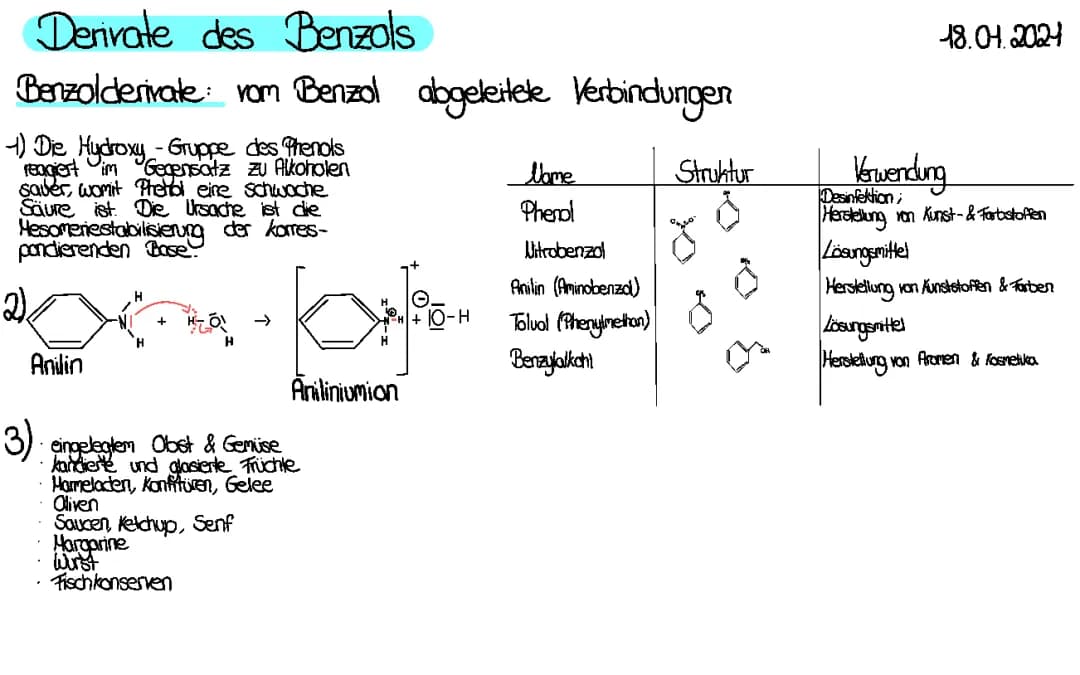 Derivate des Benzols
18.04.2024
Benzolderivate: vom Benzol abgeleitete Verbindungen
1) Die Hydroxy-Gruppe des Phenols
reagiert im Gegensatz zu Alkoholen
sauer, womit Phenol eine schwache
Säure ist. Die Ursache ist die
Mesomeriestabilisierung der korres-
pondierenden Base.
Name Struktur Verwendung
Phenol Desinfektion;
Herstellung von Kunst- & Farbstoffen
Nitrobenzol Lösungsmittel
Anilin (Aminobenzol) Herstellung von Kunststoffen & Farben
Toluol (Phenylmethan) Lösungsmittel
Benzylalkohl OH Herstellung von Aromen & Kosmetika
2) N H H + H-O H → [ H N-H H ]+ + ⊖ O-H
Anilin
Aniliniumion
3) · eingelegtem Obst & Gemüse
· kandierte und glasierte Früchte
· Mameladen, Konfitüren, Gelee
· Oliven
· Saucen, Ketchup, Senf
· Margarine
· Wurst
· Fischkonserven